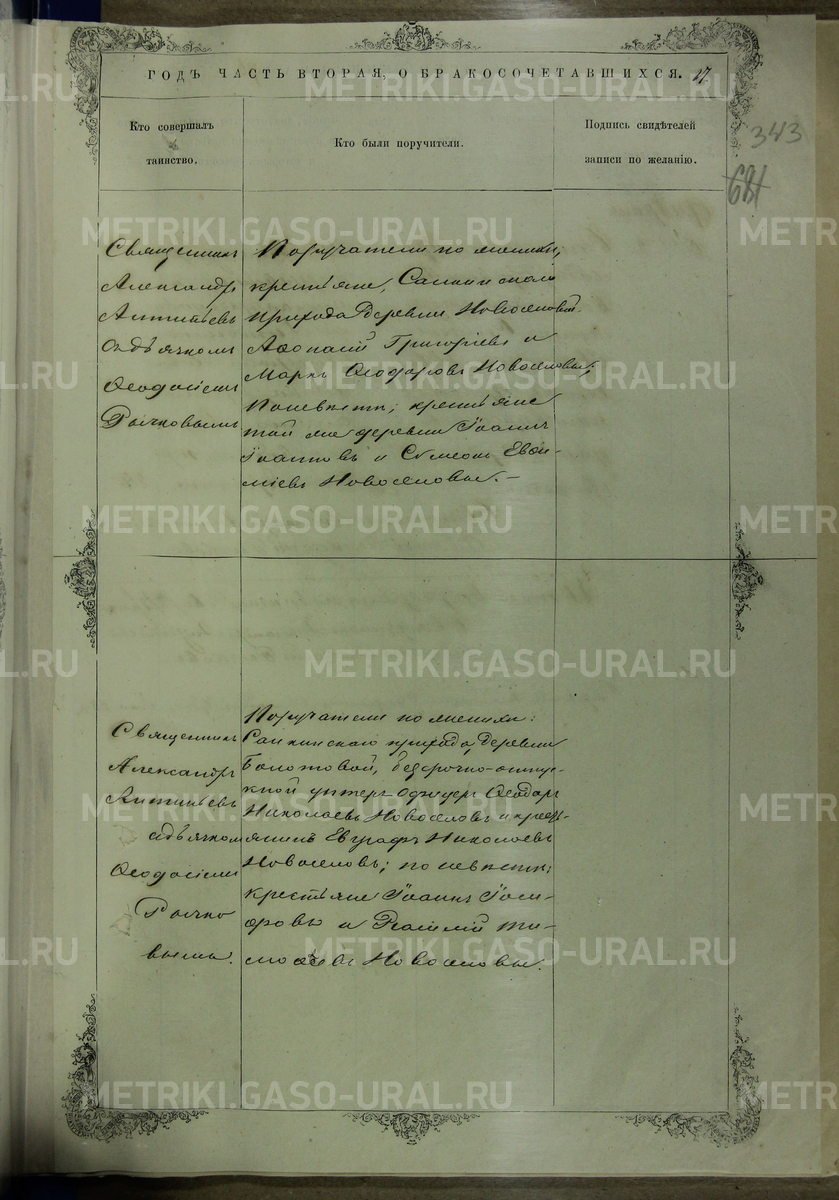 ГОДЪ ЧАСТЬ ВТОРАЯ, О БРАКОСОЧЕТАВШИХСЯ. 17
343
681
Кто совершалъ
таинство.
Кто были поручители.
Подпись свидѣтелей
записи по желанію.
Священникъ
Александръ
Антипьевъ
съ дьячкомъ
Ѳеодосіемъ
Рычковымъ
Поручатели по женихѣ;
крестьяне, Саининскаго
прихода деревни Новоселовой
Аѳонасій Григорьевъ и
Маркъ Ѳеодоровъ Новоселовы;
По невѣстѣ; крестьяне
той же деревни Іоаннъ
Іоанновъ и Сѵмеонъ Евѳи-
міевъ Новоселовы. —
Священникъ
Александръ
Антипьевъ
съ дьячкомъ
Ѳеодосіемъ
Рычко
вымъ.
Поручатели по женихѣ:
прихода, деревни
Болотовой, безсрочно-отпус-
кной унтеръ офицеръ Ѳеодоръ
Николаевъ Новоселовъ и кресть-
янинъ Евграфъ Николаевъ
Новоселовъ; по невѣстѣ;
крестьяне Іоаннъ
и Василій Ти-
моѳеевъ Новоселовы.
METRIKI.GASO-URAL.RU